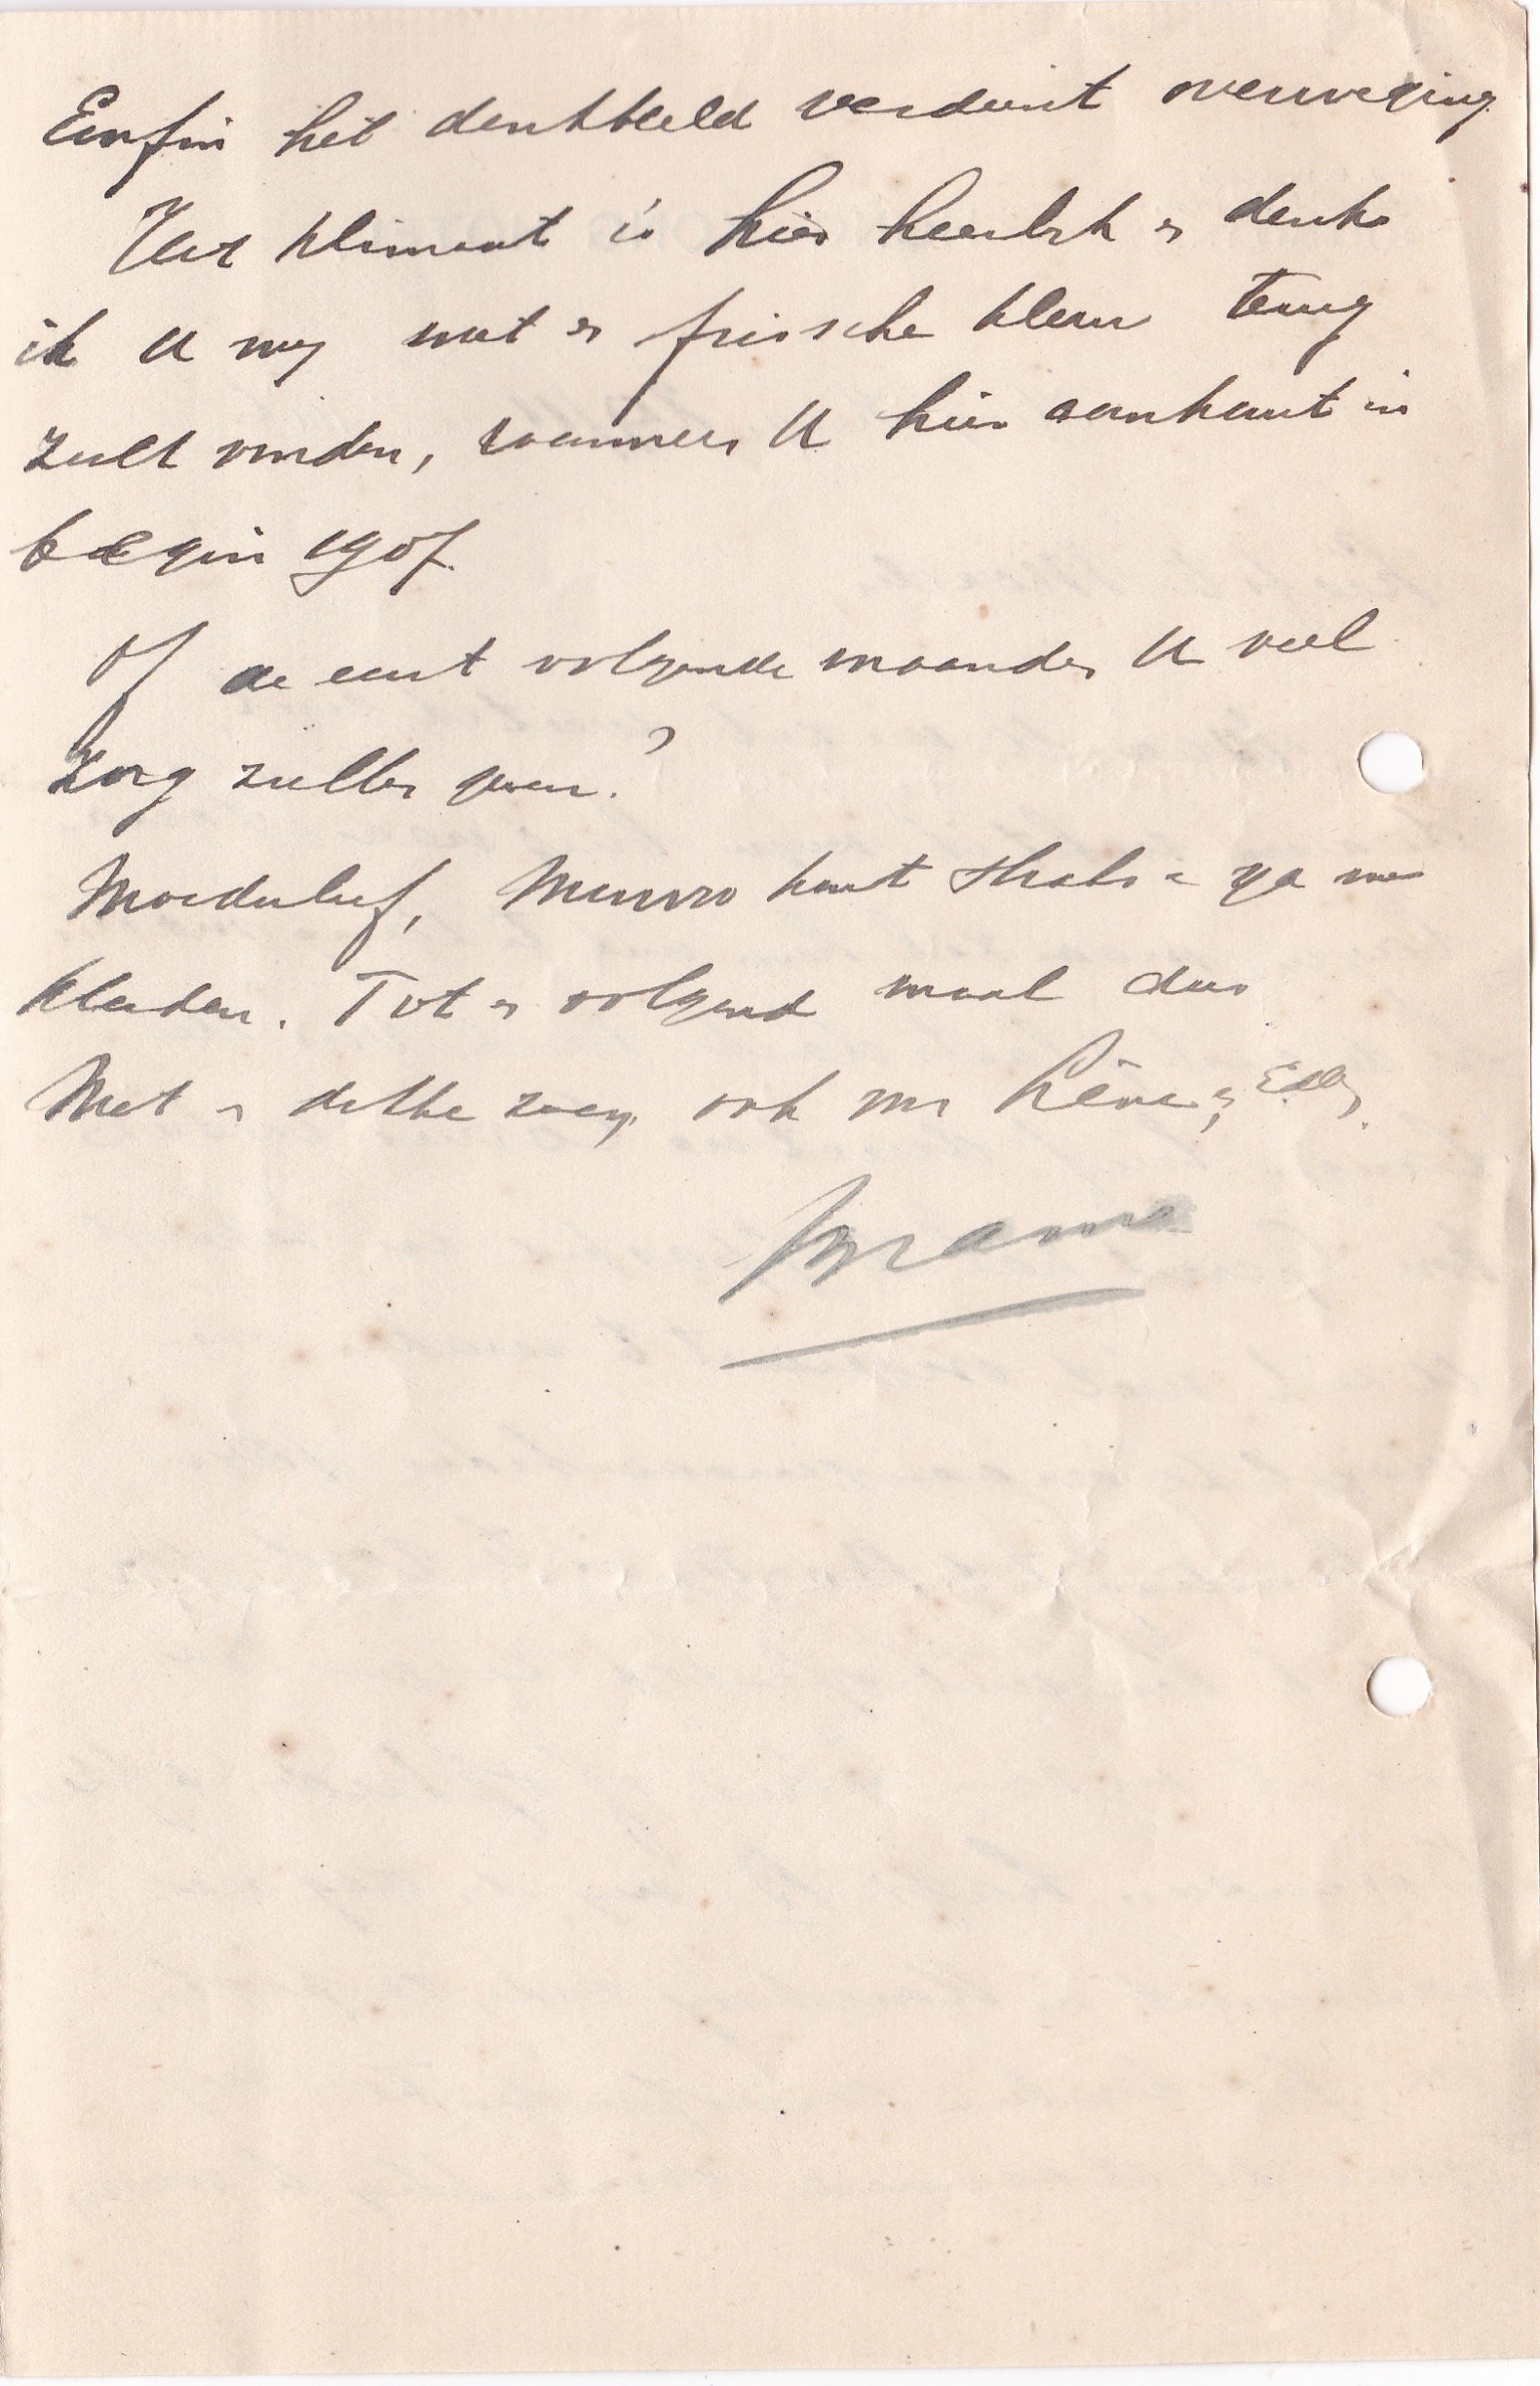 Enfin het denkbeeld verdient overweging
Het klimaat is hier heerlijk en denk
ik U mij met en frissche kleur terug
zult vinden, wanneer U hier aankomt in
begin 1907.
Of de eerst volgende maanden U veel
zorg zullen geven?
Moederlief, Munro komt straks en ga me
kleeden. Tot en volgend maal dus
Met en dikke zoen, ook vr Lène en Elly.
Bram